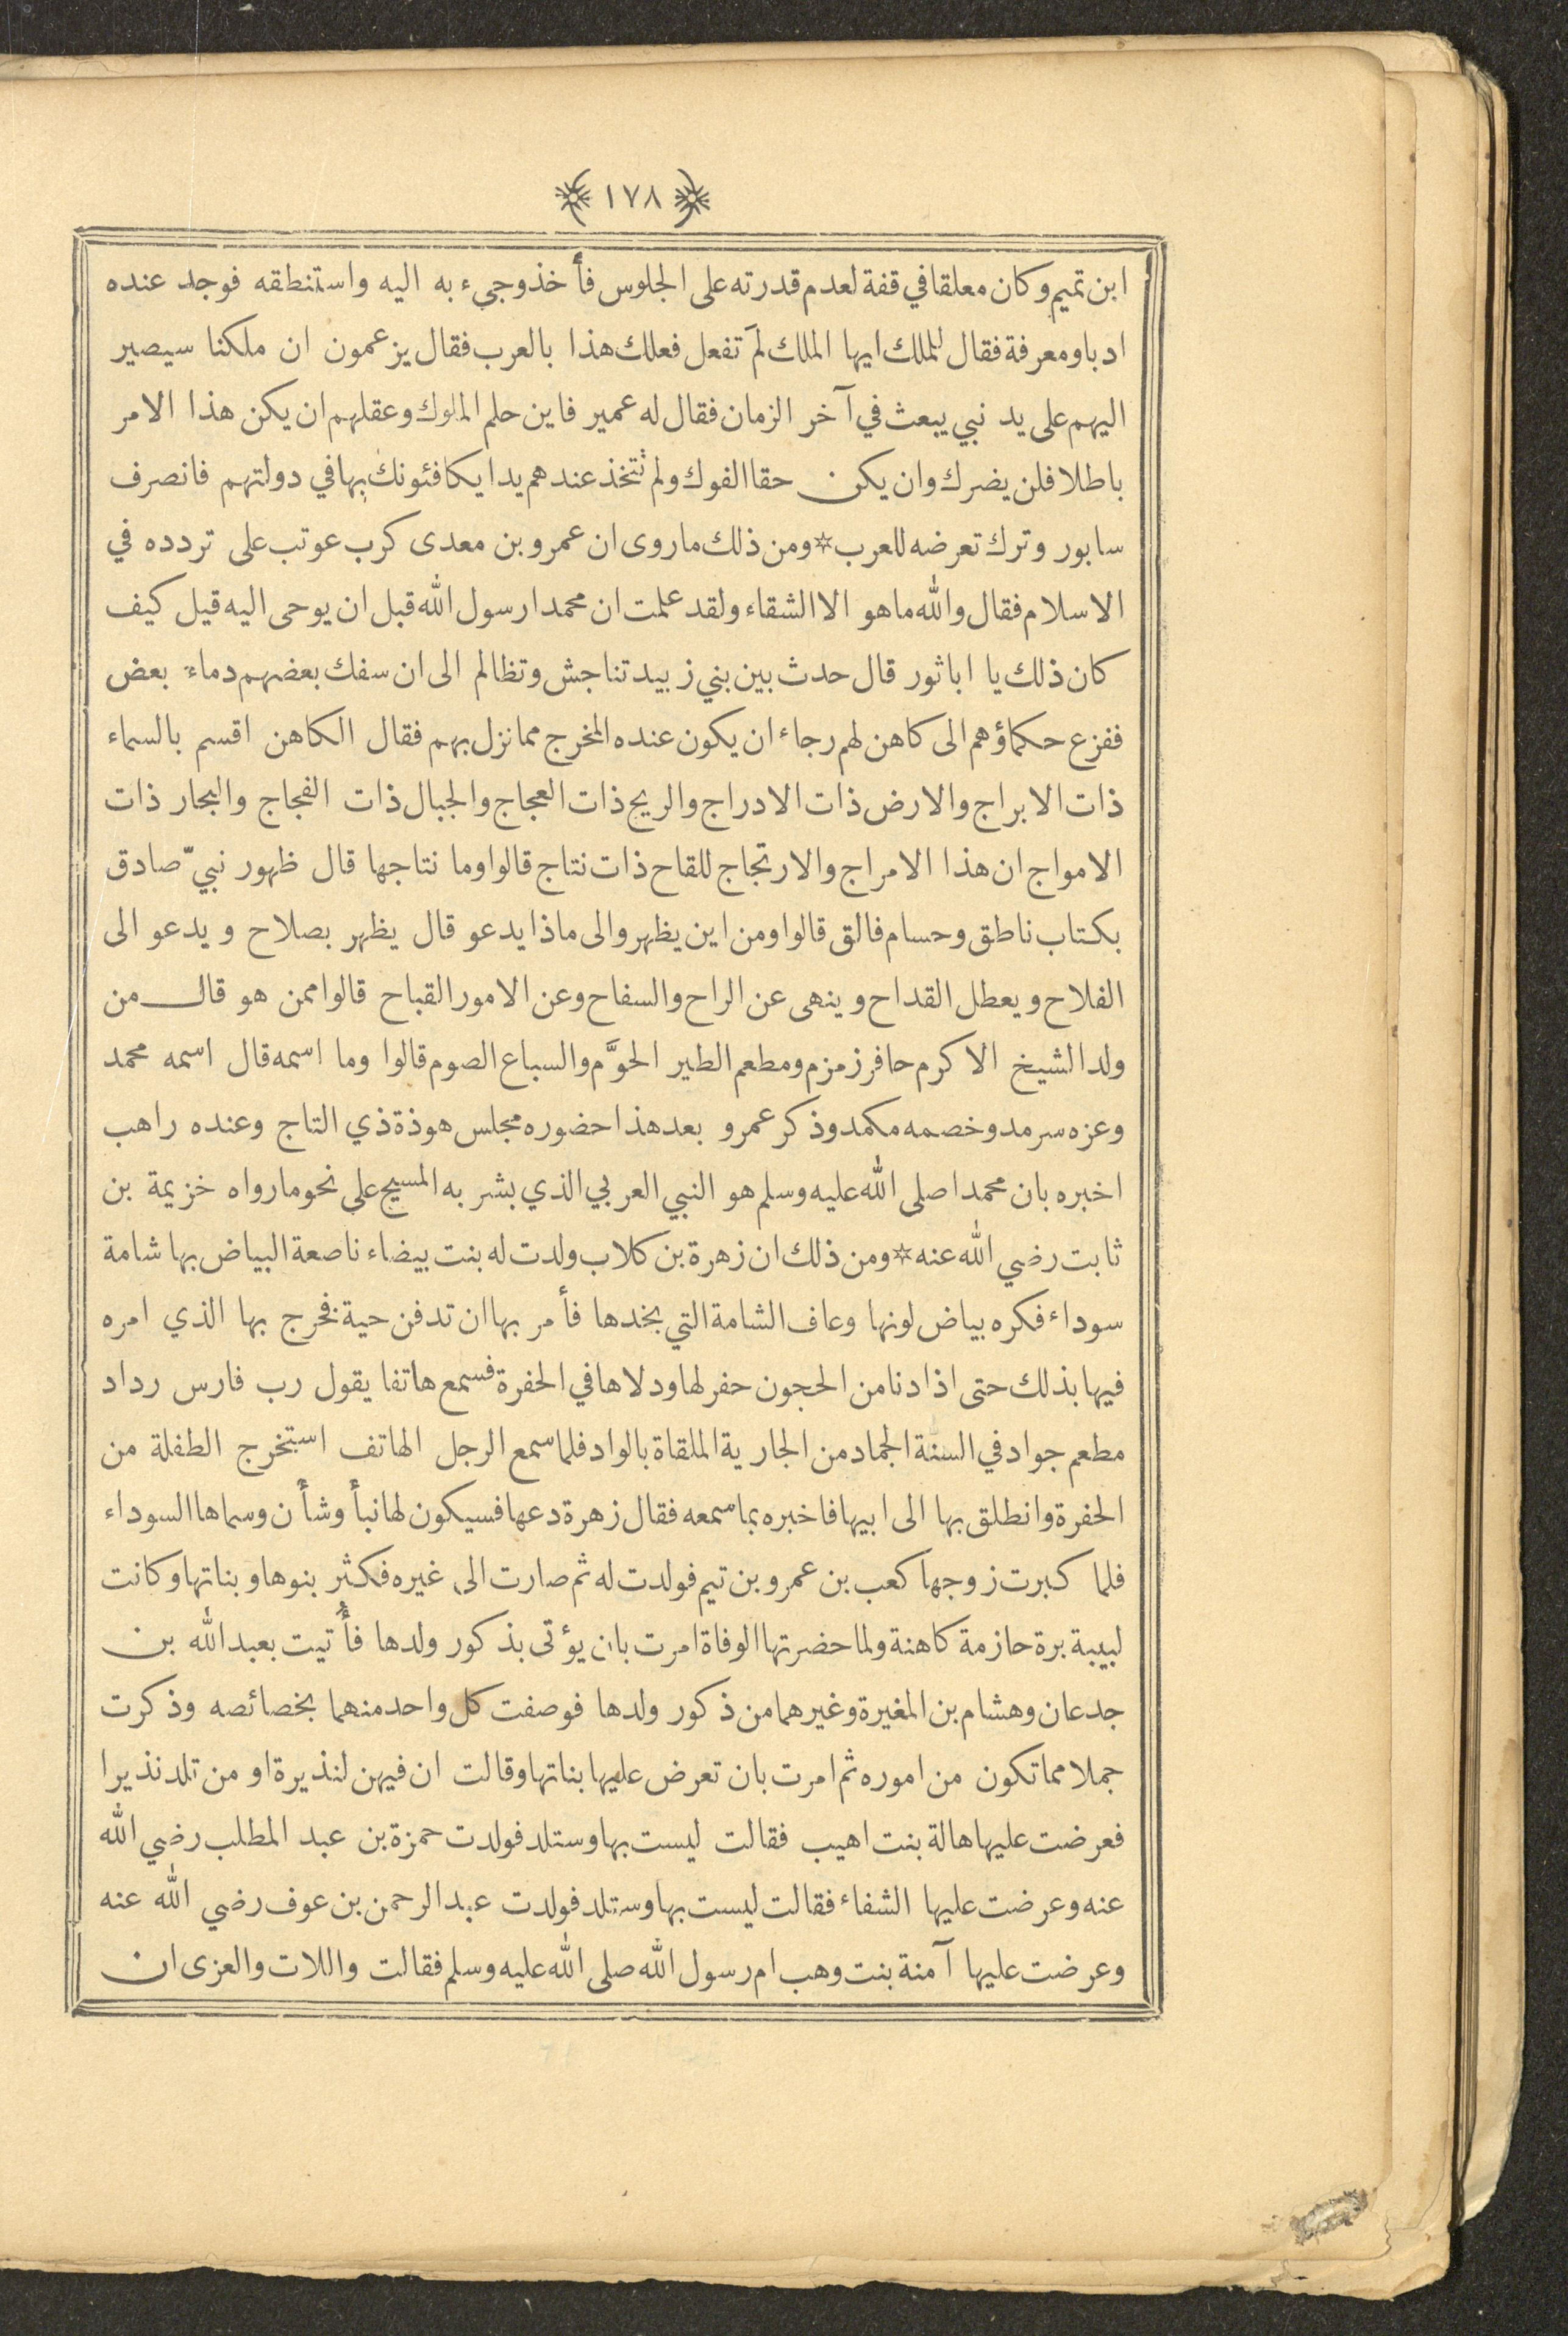 ﴿ ١٧٨ ﴾
ابن تميم وكان معلقا في قفة لعدم قدرته على الجلوس فأخذ وجيء به اليه واستنطقه فوجد عنده
ادبا ومعرفة فقال للملك ايها الملك لمَ تفعل فعلك هذا بالعرب فقال يزعمون ان ملكنا سيصير
اليهم على يد نبي يبعث في آخر الزمان فقال له عمير فاين حلم الملوك وعقلهم ان يكن هذا الامر
باطلا فلن يضرك وان يكن حقا الفوك ولم نتخذ عندهم يدا يكافئونك بها في دولتهم فانصرف
سابور وترك تعرضه للعرب * ومن ذلك ما روى ان عمرو بن معدى كرب عوتب على تردده في
الاسلام فقال والله ما هو الا الشقاء ولقد علمت ان محمدا رسول الله قبل ان يوحى اليه قيل كيف
كان ذلك يا اباثور قال حدث بين بني زبيد تناجش وتظالم الى ان سفك بعضهم دماء بعض
ففزع حكماؤهم الى كاهن لهم رجاء ان يكون عنده المخرج مما نزل بهم فقال الكاهن اقسم بالسماء
ذات الابراج والارض ذات الادراج والريح ذات العجاج والجبال ذات الفجاج والبحار ذات
الامواج ان هذا الامراج والارتجاج للقاح ذات نتاج قالوا وما نتاجها قال ظهور نبيّ صادق
بكتاب ناطق وحسام فالق قالوا ومن اين يظهر والى ماذا يدعو قال يظهر بصلاح ويدعو الى
الفلاح ويعطل القداح وينهى عن الراح والسفاح وعن الامور القباح قالوا ممن هو قال من
ولد الشيخ الاكرم حافر زمزم ومطعم الطير الحوَّم والسباع الصوم قالوا وما اسمه قال اسمه محمد
وعزه سرمد وخصمه مكمد وذكر عمرو بعد هذا حضوره مجلس هوذة ذي التاج وعنده راهب
اخبره بان محمدا صلى الله عليه وسلم هو النبي العربي الذي بشر به المسيح على نحو ما رواه خزيمة بن
ثابت رضي الله عنه * ومن ذلك ان زهرة بن كلاب ولدت له بنت بيضاء ناصعة البياض بها شامة
سوداء فكره بياض لونها وعاف الشامة التي بخدها فأمر بها ان تدفن حية فخرج بها الذي امره
فيها بذلك حتى اذا دنا من الحجون حفر لها ودلاها في الحفرة فسمع هاتفا يقول رب فارس رداد
مطعم جواد في السنة الجماد من الجارية الملقاة بالواد فلما سمع الرجل الهاتف استخرج الطفلة من
الحفرة وانطلق بها الى ابيها فاخبره بما سمعه فقال زهرة دعها فسيكون لها نبأ وشأن وسماها السوداء
فلما كبرت زوجها كعب بن عمرو بن تيم فولدت له ثم صارت الى غيره فكثر بنوها وبناتها وكانت
لبيبة برة حازمة كاهنة ولما حضرتها الوفاة امرت بان يؤتى بذكور ولدها فأُتيت بعبد الله بن
جدعان وهشام بن المغيرة وغيرهما من ذكور ولدها فوصفت كل واحد منهما بخصائصه وذكرت
جملا مما تكون من اموره ثم امرت بان تعرض عليها بناتها وقالت ان فيهن لنذيرة او من تلد نذيرا
فعرضت عليها هالة بنت اهيب فقالت ليست بها وستلد فولدت حمزة بن عبد المطلب رضي الله
عنه وعرضت عليها الشفاء فقالت ليست بها وستلد فولدت عبد الرحمن بن عوف رضي الله عنه
وعرضت عليها آمنة بنت وهب ام رسول الله صلى الله عليه وسلم فقالت واللات والعزى ان